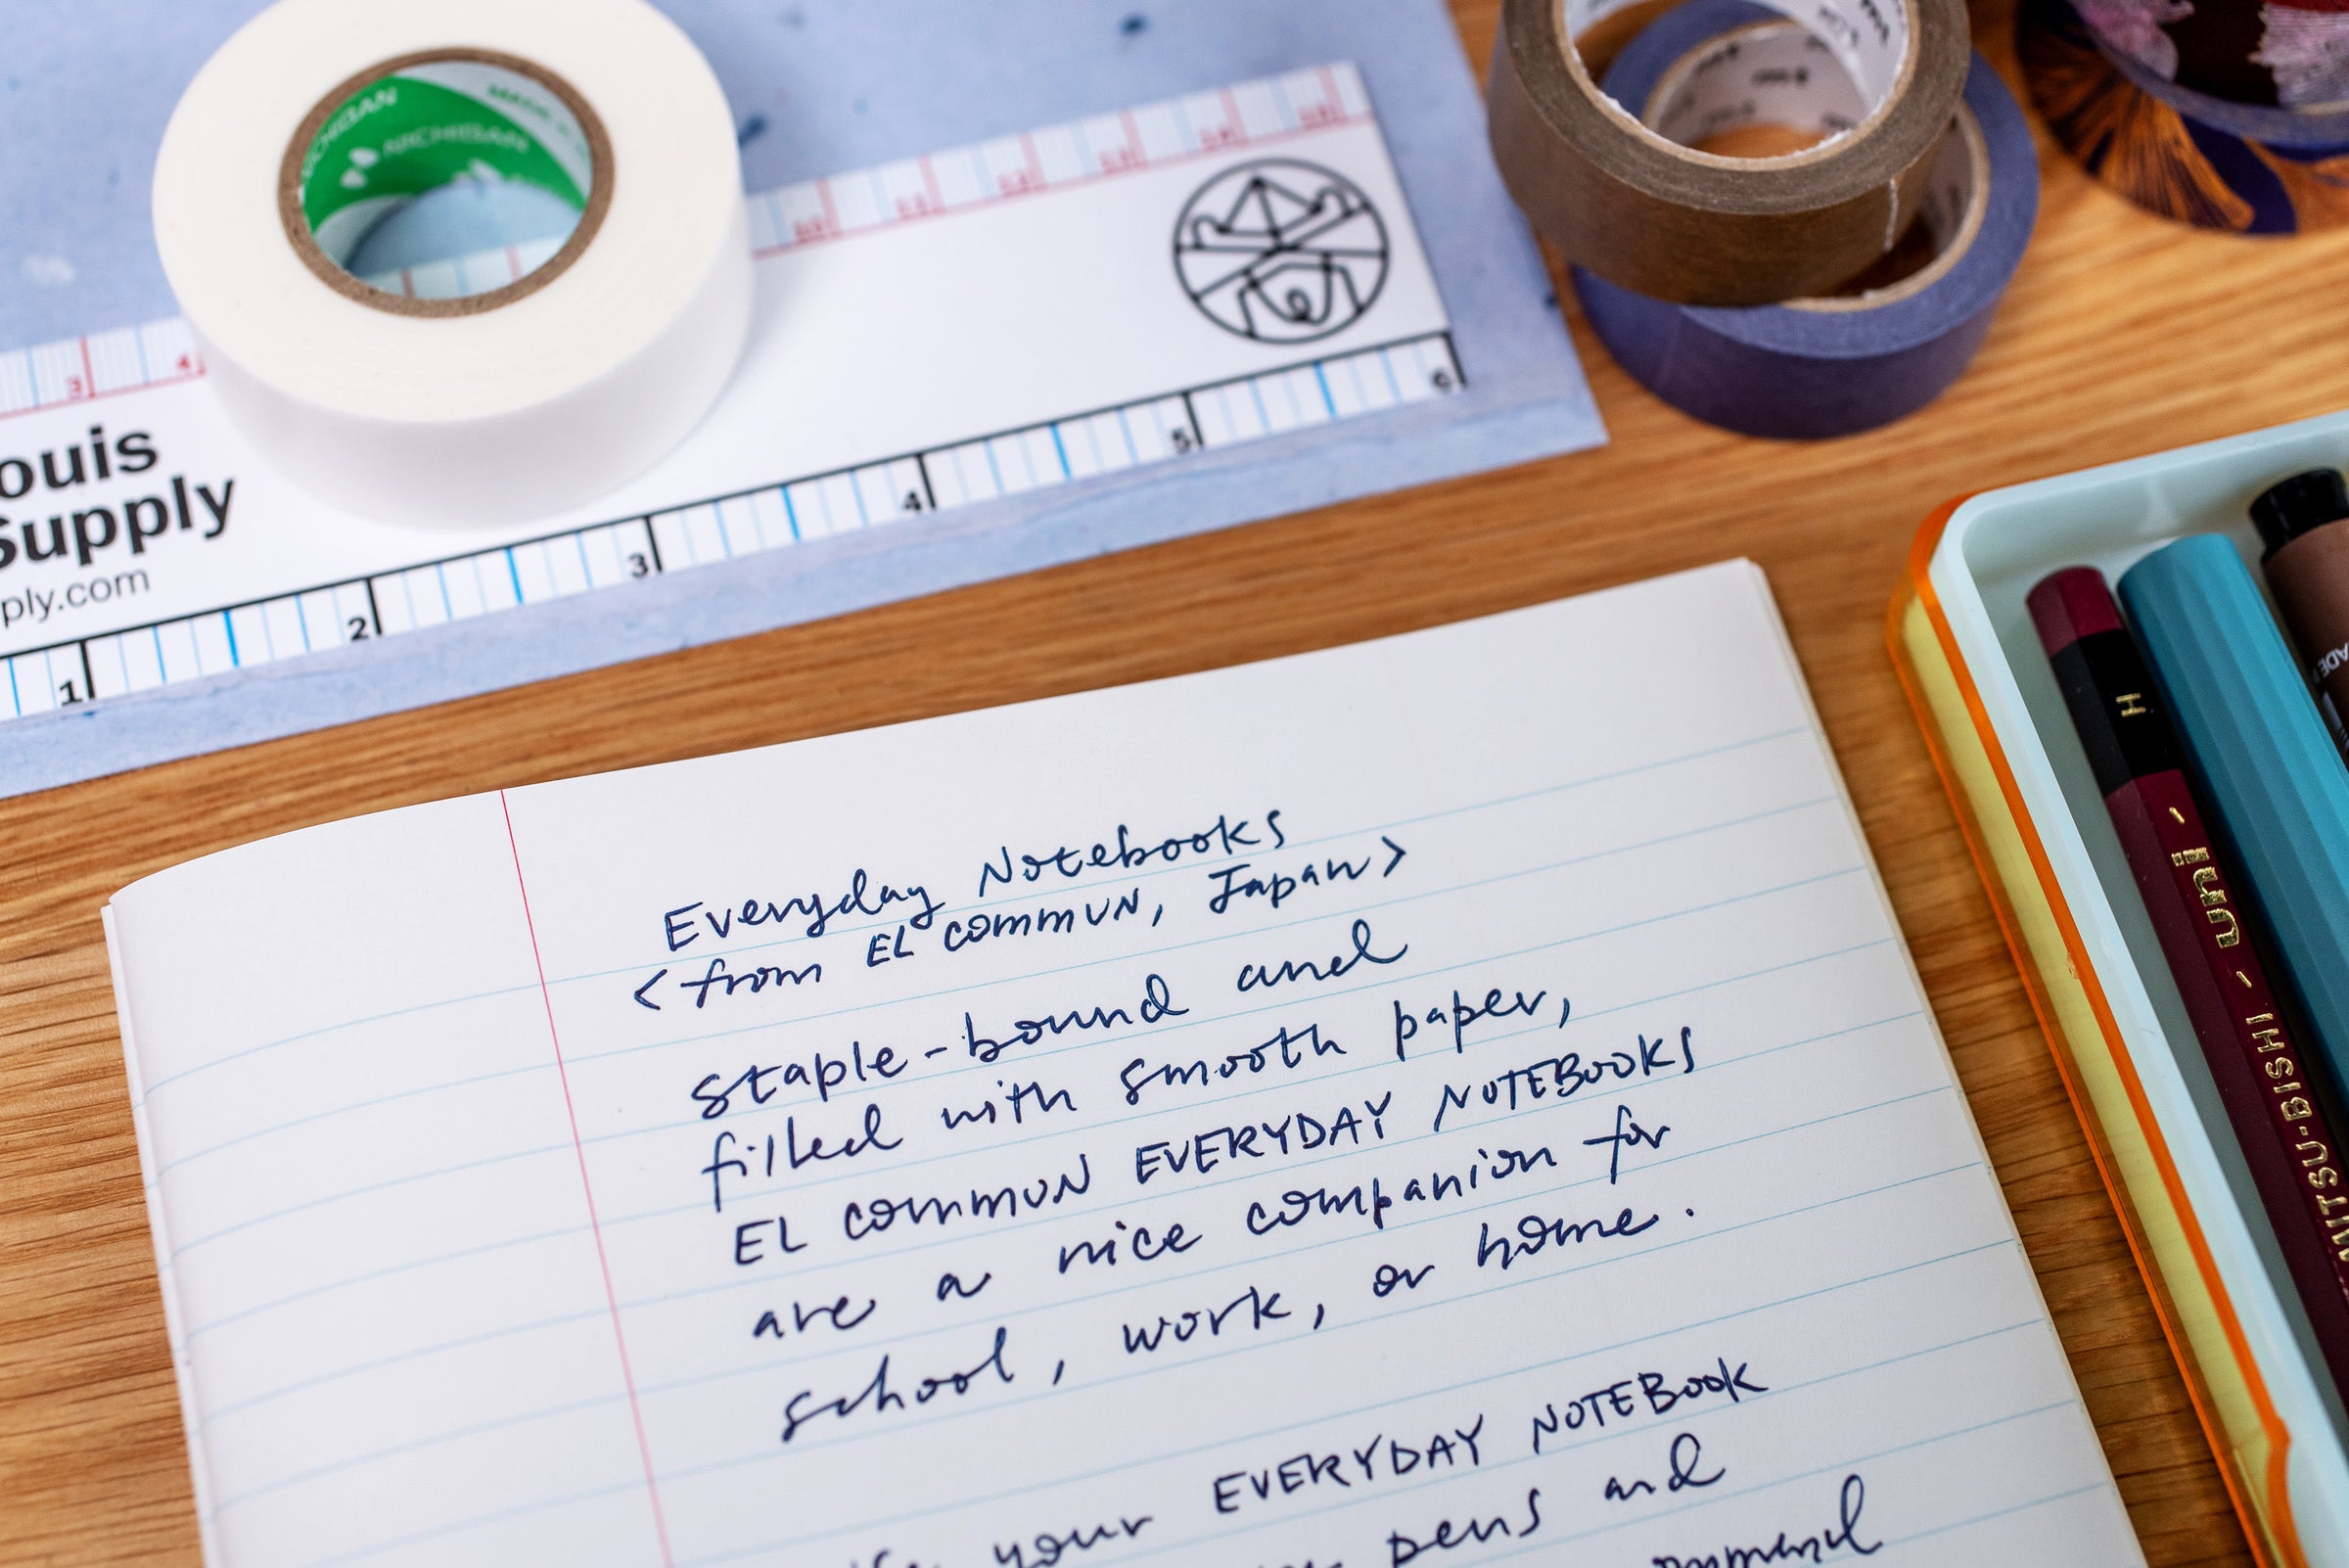 NICHIBAN
NICHIBAN
3
4
ouis
Supply
ply.com
1
2
3
4
5
6
Everyday Notebooks
<from EL COMMUN, Japan>
staple-bound and
filled with smooth paper,
EL COMMUN EVERYDAY NOTEBOOKS
are a nice companion for
school, work, or home.
your EVERYDAY NOTEBOOK
pens and
H
- uni -
MITSU-BISHI